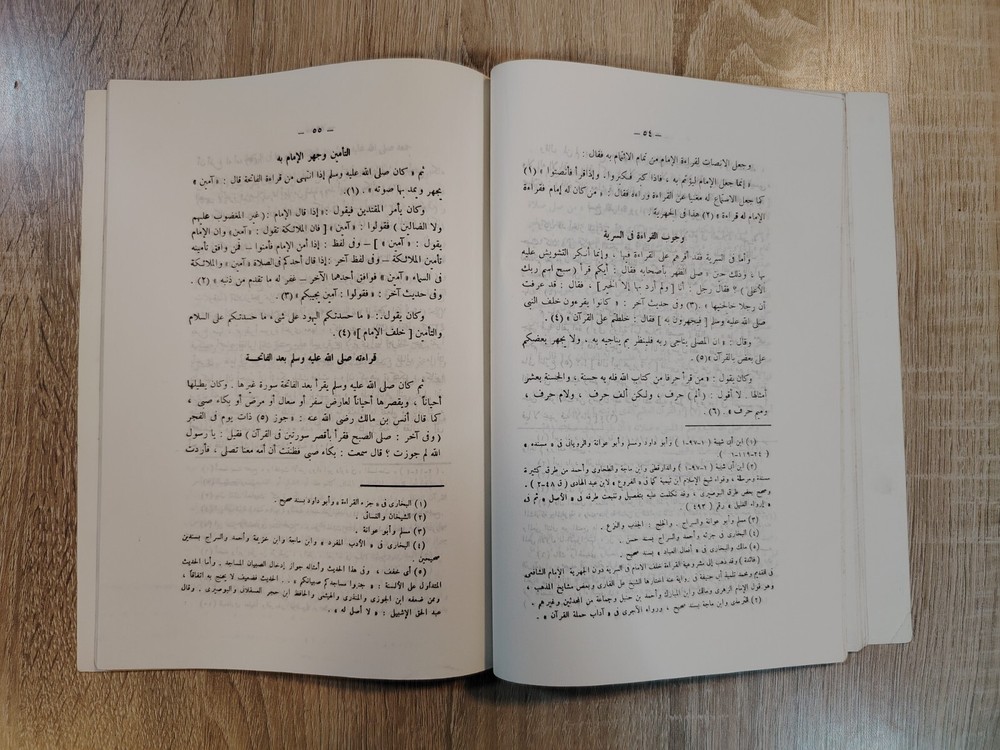 — ٥٤ —
وجعل الانصات لقراءة الإمام من تمام الائتمام به فقال :
« إنما جعل الإمام ليؤتم به ، فاذا كبر فكبروا. وإذا قرأ فأنصتوا » (١)
كما جعل الاستماع له مغنيا عن القراءة وراءه فقال : « من كان له إمام فقراءة
الإمام له قراءة » (٢) هذا فى الجهرية .
وجوب القراءة فى السرية
وأما فى السرية فقد أقرهم على القراءة فيها ، وإنما أنكر التشويش عليه
بها ، وذلك حين « صلى الظهر بأصحابه فقال : أيكم قرأ ( سبح اسم ربك
الأعلى ) ؟ فقال رجل : أنا [ ولم أرد بها إلا الخير ] ، فقال : قد عرفت
أن رجلا خالجنيها » .(٣) وفى حديث آخر : « كانوا يقرءون خلف النبى
صلى الله عليه وسلم [ فيجهرون به ] فقال : خلطتم على القرآن » (٤) .
وقال : « ان المصلى يناجى ربه فلينظر بم يناجيه به . ولا يجهر بعضكم
على بعض بالقرآن »(٥) .
وكان يقول : « من قرأ حرفا من كتاب الله فله به حسنة ، والحسنة بعشر
أمثالها . لا أقول : ( ألم ) حرف ، ولكن ألف حرف ، ولام حرف ،
وميم حرف » . (٦) .
(١) ابن أبى شيبة ( ١-٩٧-١ ) وأبو داود ومسلم وأبو عوانة والرويانى فى « مسنده »
( ٢٤-١١٩-١ ) .
(٢) ابن أبى شيبة ( ١-٩٧-١ ) والدارقطنى وابن ماجة والطحاوى وأحمد من طرق كثيرة
مسندة ومرسلة ، وقواه شيخ الإسلام ابن تيمية كما فى « الفروع » لابن عبد الهادى ( ق ٤٨-٢ ) .
وصحح بعض طرقه البوصيرى ، وقد تكلمت عليه بتفصيل وتتبعت طرقه فى « الأصل » ثم فى
« إرواء الغليل » رقم ( ٤٩٣ ) .
(٣) مسلم وأبو عوانة والسراج . والخلج : الجذب والنزع .
(٤) البخارى فى جزئه وأحمد والسراج بسند حسن .
(٥) مالك والبخارى فى « أفعال العباد » بسند صحيح .
( فائدة ) وقد ذهب إلى مشروعية القراءة خلف الإمام فى السرية دون الجهرية الإمام الشافعى
فى القديم ومحمد تلميذ أبى حنيفة فى رواية عنه اختارها الشيخ على القارى وبعض مشايخ المذهب ،
وهو قول الإمام الزهرى ومالك وابن المبارك وأحمد بن حنبل وجماعة من المحدثين وغيرهم .
(٦) الترمذى وابن ماجة بسند صحيح ، ورواه الآجرى فى « آداب حملة القرآن » .
— ٥٥ —
التأمين وجهر الإمام به
ثم « كان صلى الله عليه وسلم إذا انتهى من قراءة الفاتحة قال : « آمين »
يجهر ويمد بها صوته » . (١).
وكان يأمر المقتدين فيقول :« إذا قال الإمام :( غير المغضوب عليهم
ولا الضالين ) فقولوا : « آمين » [ فان الملائكة تقول : « آمين» وان الإمام
يقول : « آمين » ] — وفى لفظ : إذا أمن الإمام فأمنوا — فمن وافق تأمينه
تأمين الملائكة — وفى لفظ آخر : إذا قال أحدكم فى الصلاة «آمين» والملائكة
فى السماء « آمين» فوافق أحدهما الآخر — غفر له ما تقدم من ذنبه » (٢) .
وفى حديث آخر : « فقولوا : آمين يجبكم » (٣) .
وكان يقول .: « ما حسدتكم اليهود على شىء ما حسدتكم على السلام
والتأمين [ خلف الإمام ]» (٤) .
قراءته صلى الله عليه وسلم بعد الفاتحة
ثم كان صلى الله عليه وسلم يقرأ بعد الفاتحة سورة غيرها . وكان يطيلها
أحياناً ، ويقصرها أحياناً لعارض سفر أو سعال أو مرض أو بكاء صبى ،
كما قال أنس بن مالك رضى الله عنه : « جوز (٥) ذات يوم فى الفجر
( وفى آخر : صلى الصبح فقرأ بأقصر سورتين فى القرآن ) فقيل : يا رسول
الله لم جوزت ؟ قال سمعت : بكاء صبى فظننت أن أمه معنا تصلى ، فأردت
(١) البخارى فى « جزء القراءة » وأبو داود بسند صحيح .
(٢) الشيخان والنسائى .
(٣) مسلم وأبو عوانة .
(٤) البخارى فى « الأدب المفرد » وابن ماجة وابن خزيمة وأحمد والسراج بسندين
صحيحين .
(٥) أى خفف ، وفى هذا الحديث وأمثاله جواز إدخال الصبيان المساجد . وأما الحديث
المتداول على الألسنة : « جنبوا مساجدكم صبيانكم . . . » الحديث فضعيف لا يحتج به اتفاقاً ،
وممن ضعفه ابن الجوزى والمنذرى والهيثمى والحافظ ابن حجر العسقلانى والبوصيرى . وقال
عبد الحق الإشبيلى : « لا أصل له » .